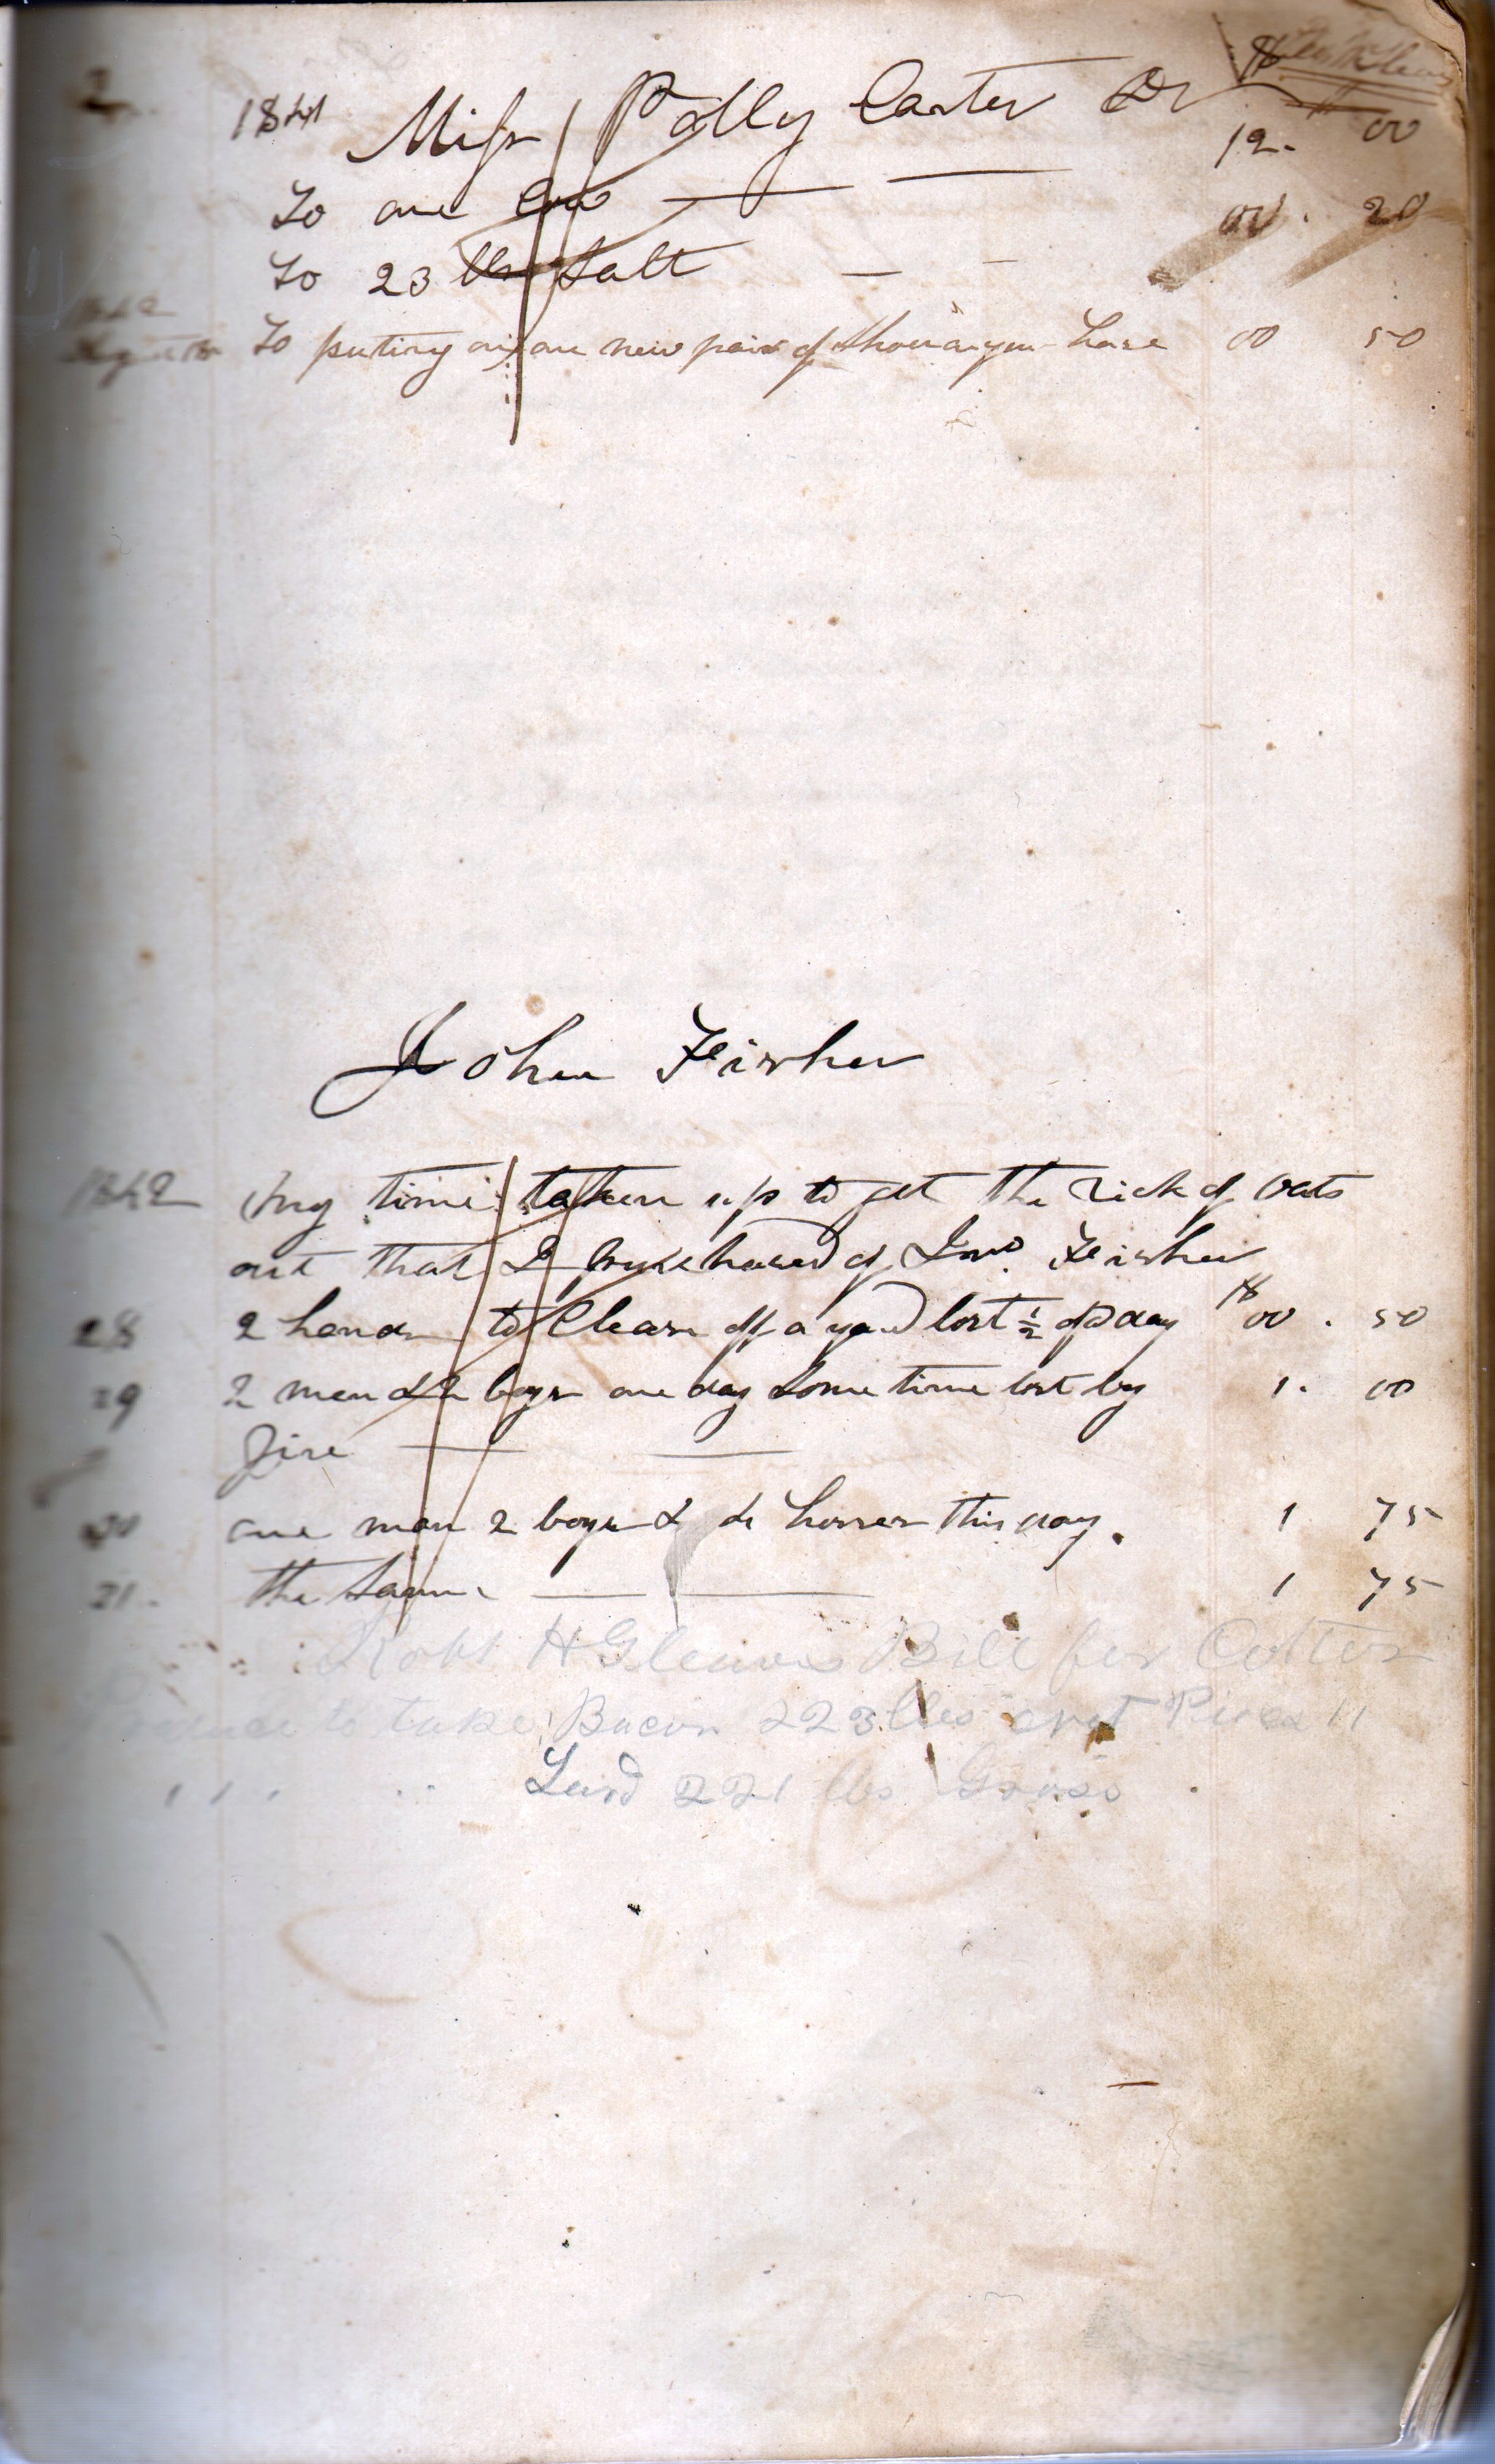 2
1841 Miss Polly Carter Dr $
To one Cow 12. 00
To 23 lbs Salt 00. 20
1842
To puting on one new pair of shoes on your horse 00 50
John Fisher
1842 my time taken up to get the rick of oats
out that I purchased of Jno. Fisher
28 2 hands to Clean off a yard lost ½ of Day $00. 50
29 2 men & 2 boys one day some time lost by 1. 00
fire
30 one man 2 boys & 4 horses this day. 1 75
31. the same 1 75
Robt H Gleaves Bill for Cotton
to take Bacon 223 lbs Pices 11
" " Lard 221 lbs Gross